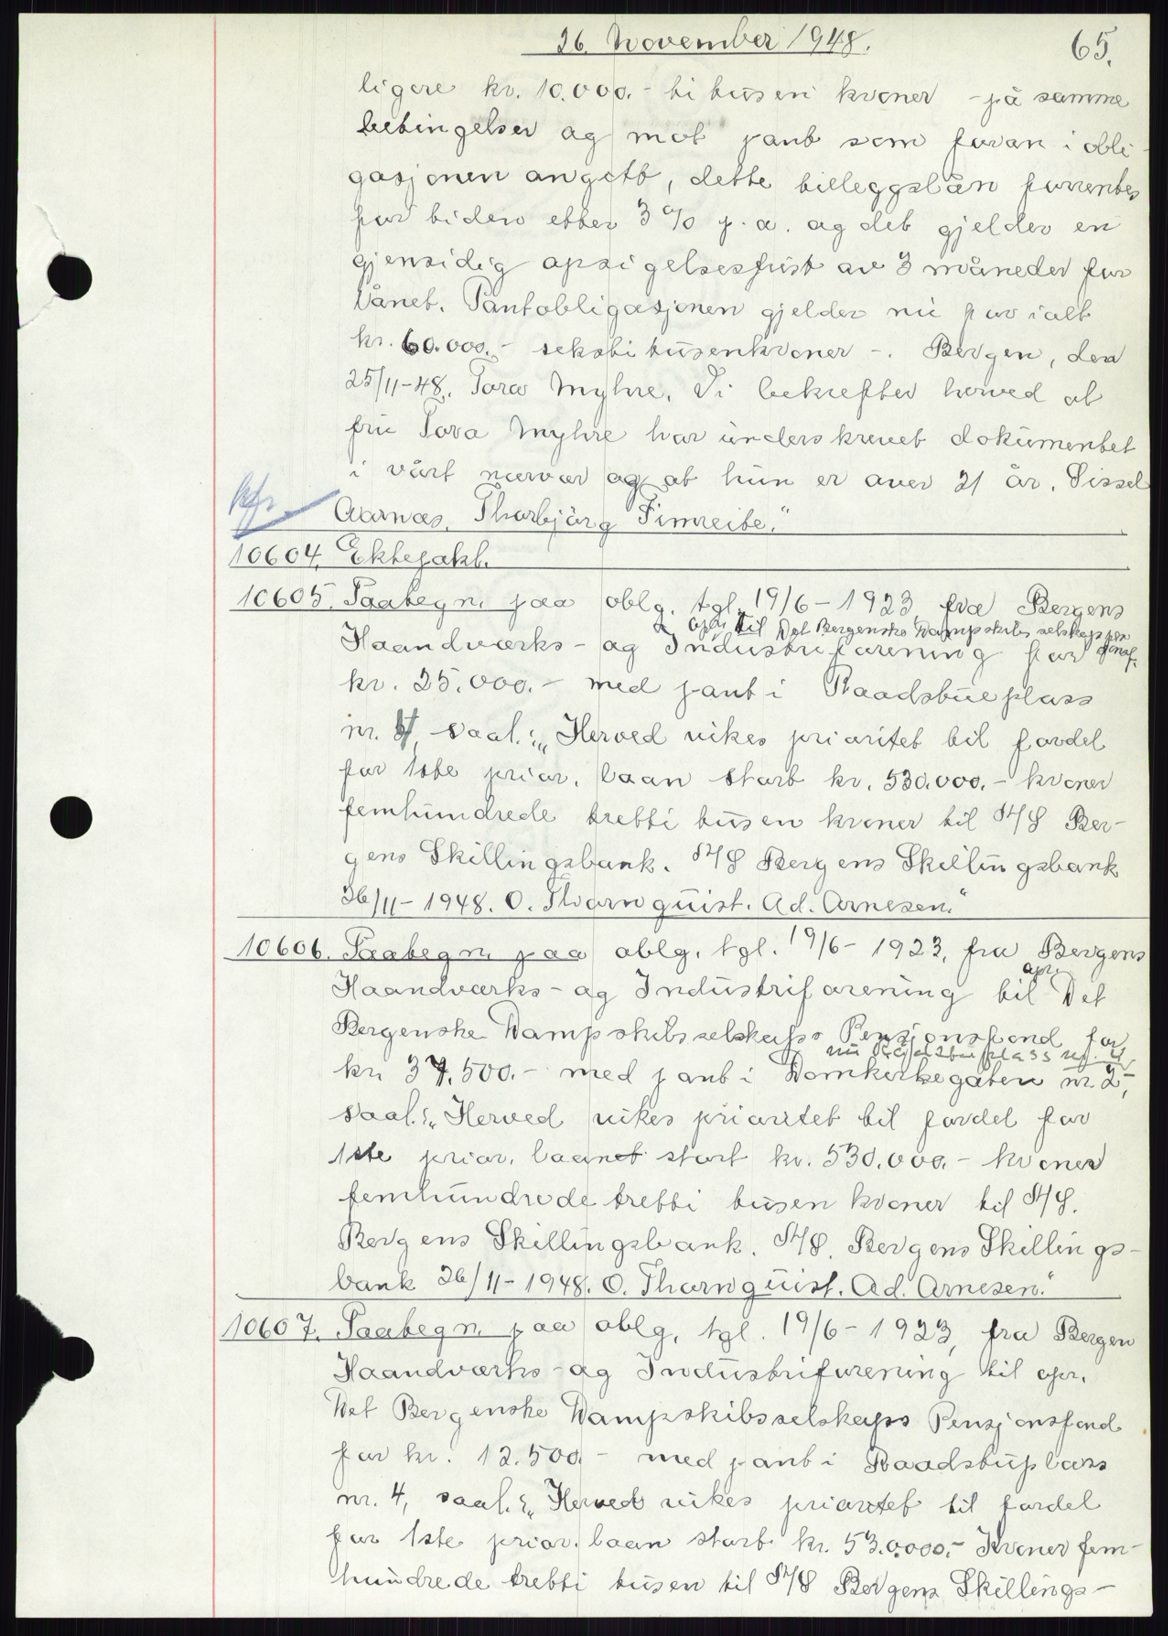 26. November 1948.
65.
ligere kr. 10.000.- ti tusen kroner - på samme
betingelser og mot pant som foran i obli-
gasjonen angitt, dette tilleggslån forrentes
for tiden etter 3 % p.a. og det gjelder en
gjensidig opsigelsesfrist av 3 måneder for
lånet. Pantobligasjonen gjelder nu for ialt
kr. 60.000.- seksti tusenkroner -. Bergen, den
25/11-48. Tora Myhre. Vi bekrefter herved at
fru Tora Myhre har underskrevet dokumentet
i vårt nærvær og at hun er over 21 år. Sissel
Kfr.
Aarnæs. Thorbjörg Timreite."
10604. Ektepakt.
10605. Paategn. paa oblg. tgl. 19/6-1923, fra Bergens
opr. til Det Bergenske Dampskibsselskaps pensjonsf.
Haandværks- og Industriforening for
kr. 25.000.- med pant i Raadstueplass
nr. 4, saal.: "Herved vikes prioritet til fordel
for 1ste prior. laan stort kr. 530.000.- kroner
femhundrede tretti tusen kroner til A/S Ber-
gens Skillingsbank. A/S Bergens Skillingsbank
26/11-1948. O. Thornquist. Ad. Arnesen."
10606. Paategn. paa oblg. tgl. 19/6-1923, fra Bergens
opr.
Haandværks- og Industriforening til Det
Bergenske Dampskibsselskaps Pensjonsfond for
nu Rådstuplass nr. 4,
kr. 37.500.- med pant i Domkirkegaten nr. 2,
saal.: "Herved vikes prioritet til fordel for
1ste prior. laanet stort kr. 530.000.- kroner
femhundrede tretti tusen kroner til A/S.
Bergens Skillingsbank. A/S. Bergens Skillings-
bank 26/11-1948. O. Thornquist. Ad. Arnesen."
10607. Paategn. paa oblg. tgl. 19/6-1923, fra Bergen
Haandværks- og Industriforening til opr.
Det Bergenske Dampskibsselskaps Pensjonsfond
for kr. 12.500.- med pant i Raadstuplass
nr. 4, saal.: "Herved vikes prioritet til fordel
for 1ste prior. laan stort kr. 530.000.- Kroner fem-
hundrede tretti tusen til A/S Bergens Skillings-